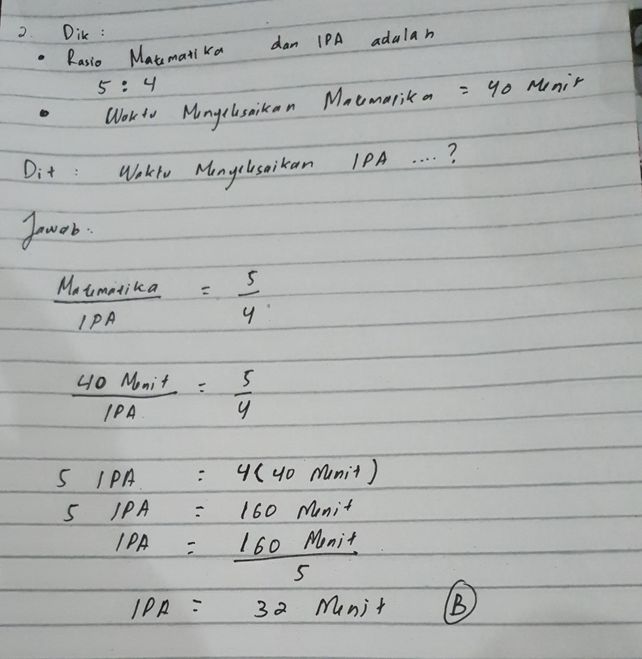 2. Dik :
• Rasio Matematika dan IPA adalah
5 : 4
• Waktu Menyelesaikan Matematika = 40 Menit
Dit : Waktu Menyelesaikan IPA .... ?
Jawab :
Matematika / IPA = 5 / 4
40 Menit / IPA = 5 / 4
5 IPA = 4(40 Menit)
5 IPA = 160 Menit
IPA = 160 Menit / 5
IPA = 32 Menit (B)